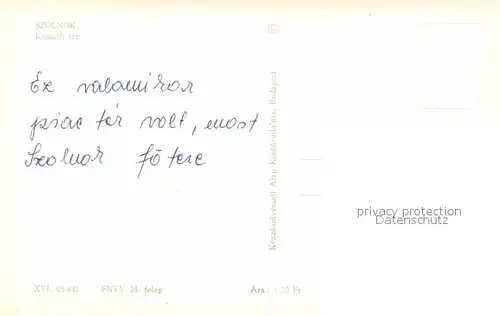 SZOLNOK
Kossuth tér
Ez valamikor
piac tér volt, most
Szolnok főtere
Képzőművészeti Alap Kiadóvállalata, Budapest
privacy protection
Datenschutz
XVI. 65/631 FNYV 23. telep Ára: 1,20 Ft